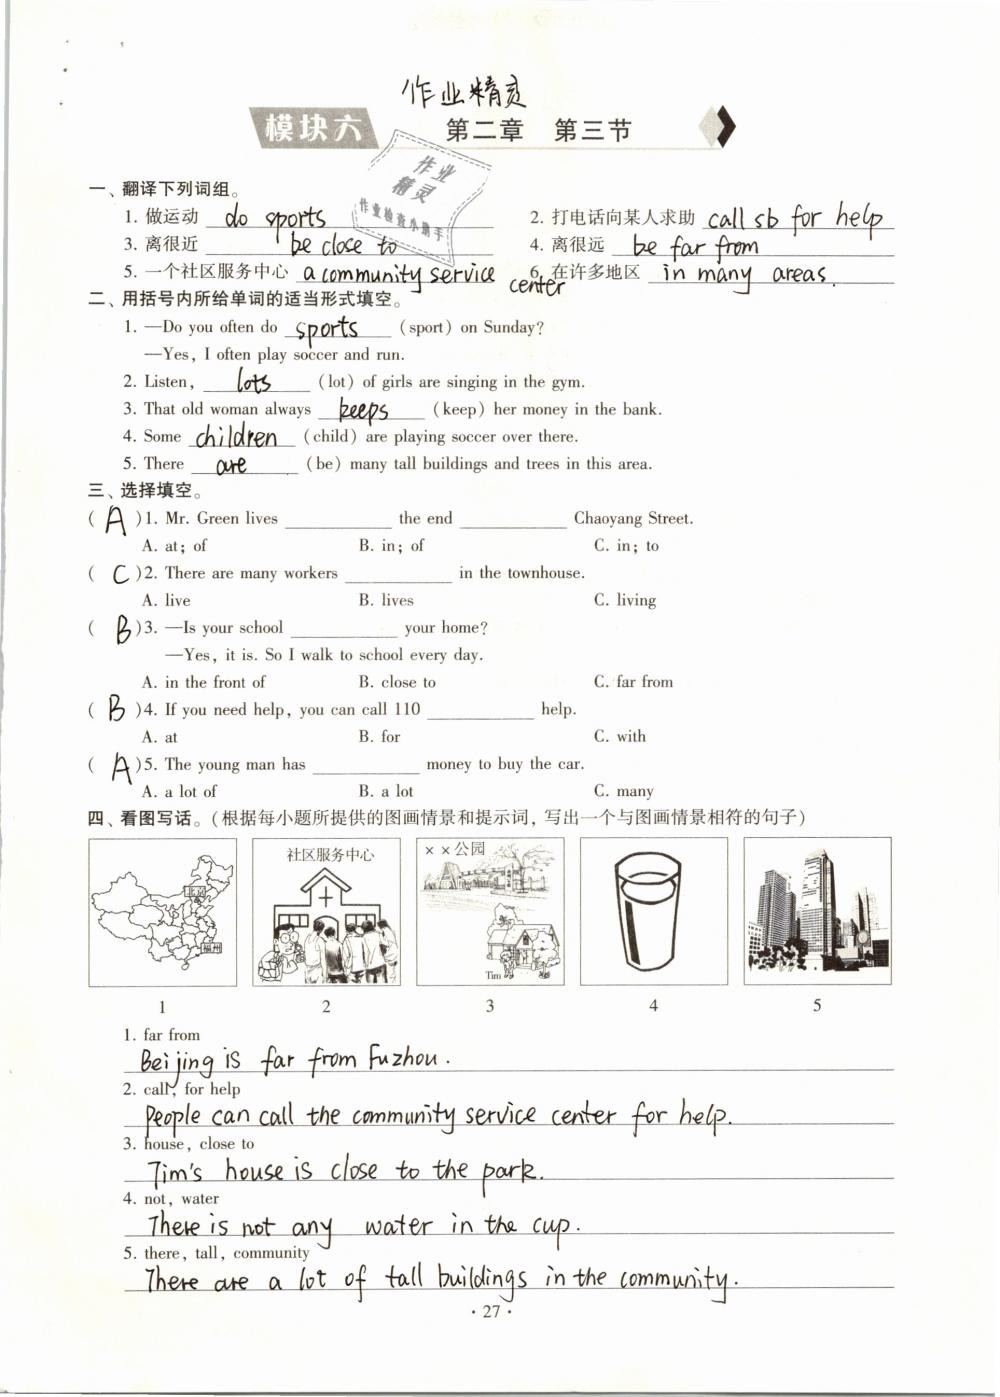 作业精灵
模块六 第二章 第三节
作业
精灵
作业检查小助手
一、翻译下列词组。
1. 做运动 do sports 2. 打电话向某人求助 call sb for help
3. 离很近 be close to 4. 离很远 be far from
5. 一个社区服务中心 a community service center 6. 在许多地区 in many areas.
二、用括号内所给单词的适当形式填空。
1. —Do you often do sports (sport) on Sunday?
—Yes, I often play soccer and run.
2. Listen, lots (lot) of girls are singing in the gym.
3. That old woman always keeps (keep) her money in the bank.
4. Some children (child) are playing soccer over there.
5. There are (be) many tall buildings and trees in this area.
三、选择填空。
( A )1. Mr. Green lives ________ the end ________ Chaoyang Street.
A. at; of B. in; of C. in; to
( C )2. There are many workers ________ in the townhouse.
A. live B. lives C. living
( B )3. —Is your school ________ your home?
—Yes, it is. So I walk to school every day.
A. in the front of B. close to C. far from
( B )4. If you need help, you can call 110 ________ help.
A. at B. for C. with
( A )5. The young man has ________ money to buy the car.
A. a lot of B. a lot C. many
四、看图写话。(根据每小题所提供的图画情景和提示词, 写出一个与图画情景相符的句子)
北京
福州
社区服务中心
××公园
Tim
1 2 3 4 5
1. far from
Beijing is far from Fuzhou.
2. call, for help
People can call the community service center for help.
3. house, close to
Tim's house is close to the park.
4. not, water
There is not any water in the cup.
5. there, tall, community
There are a lot of tall buildings in the community.
· 27 ·